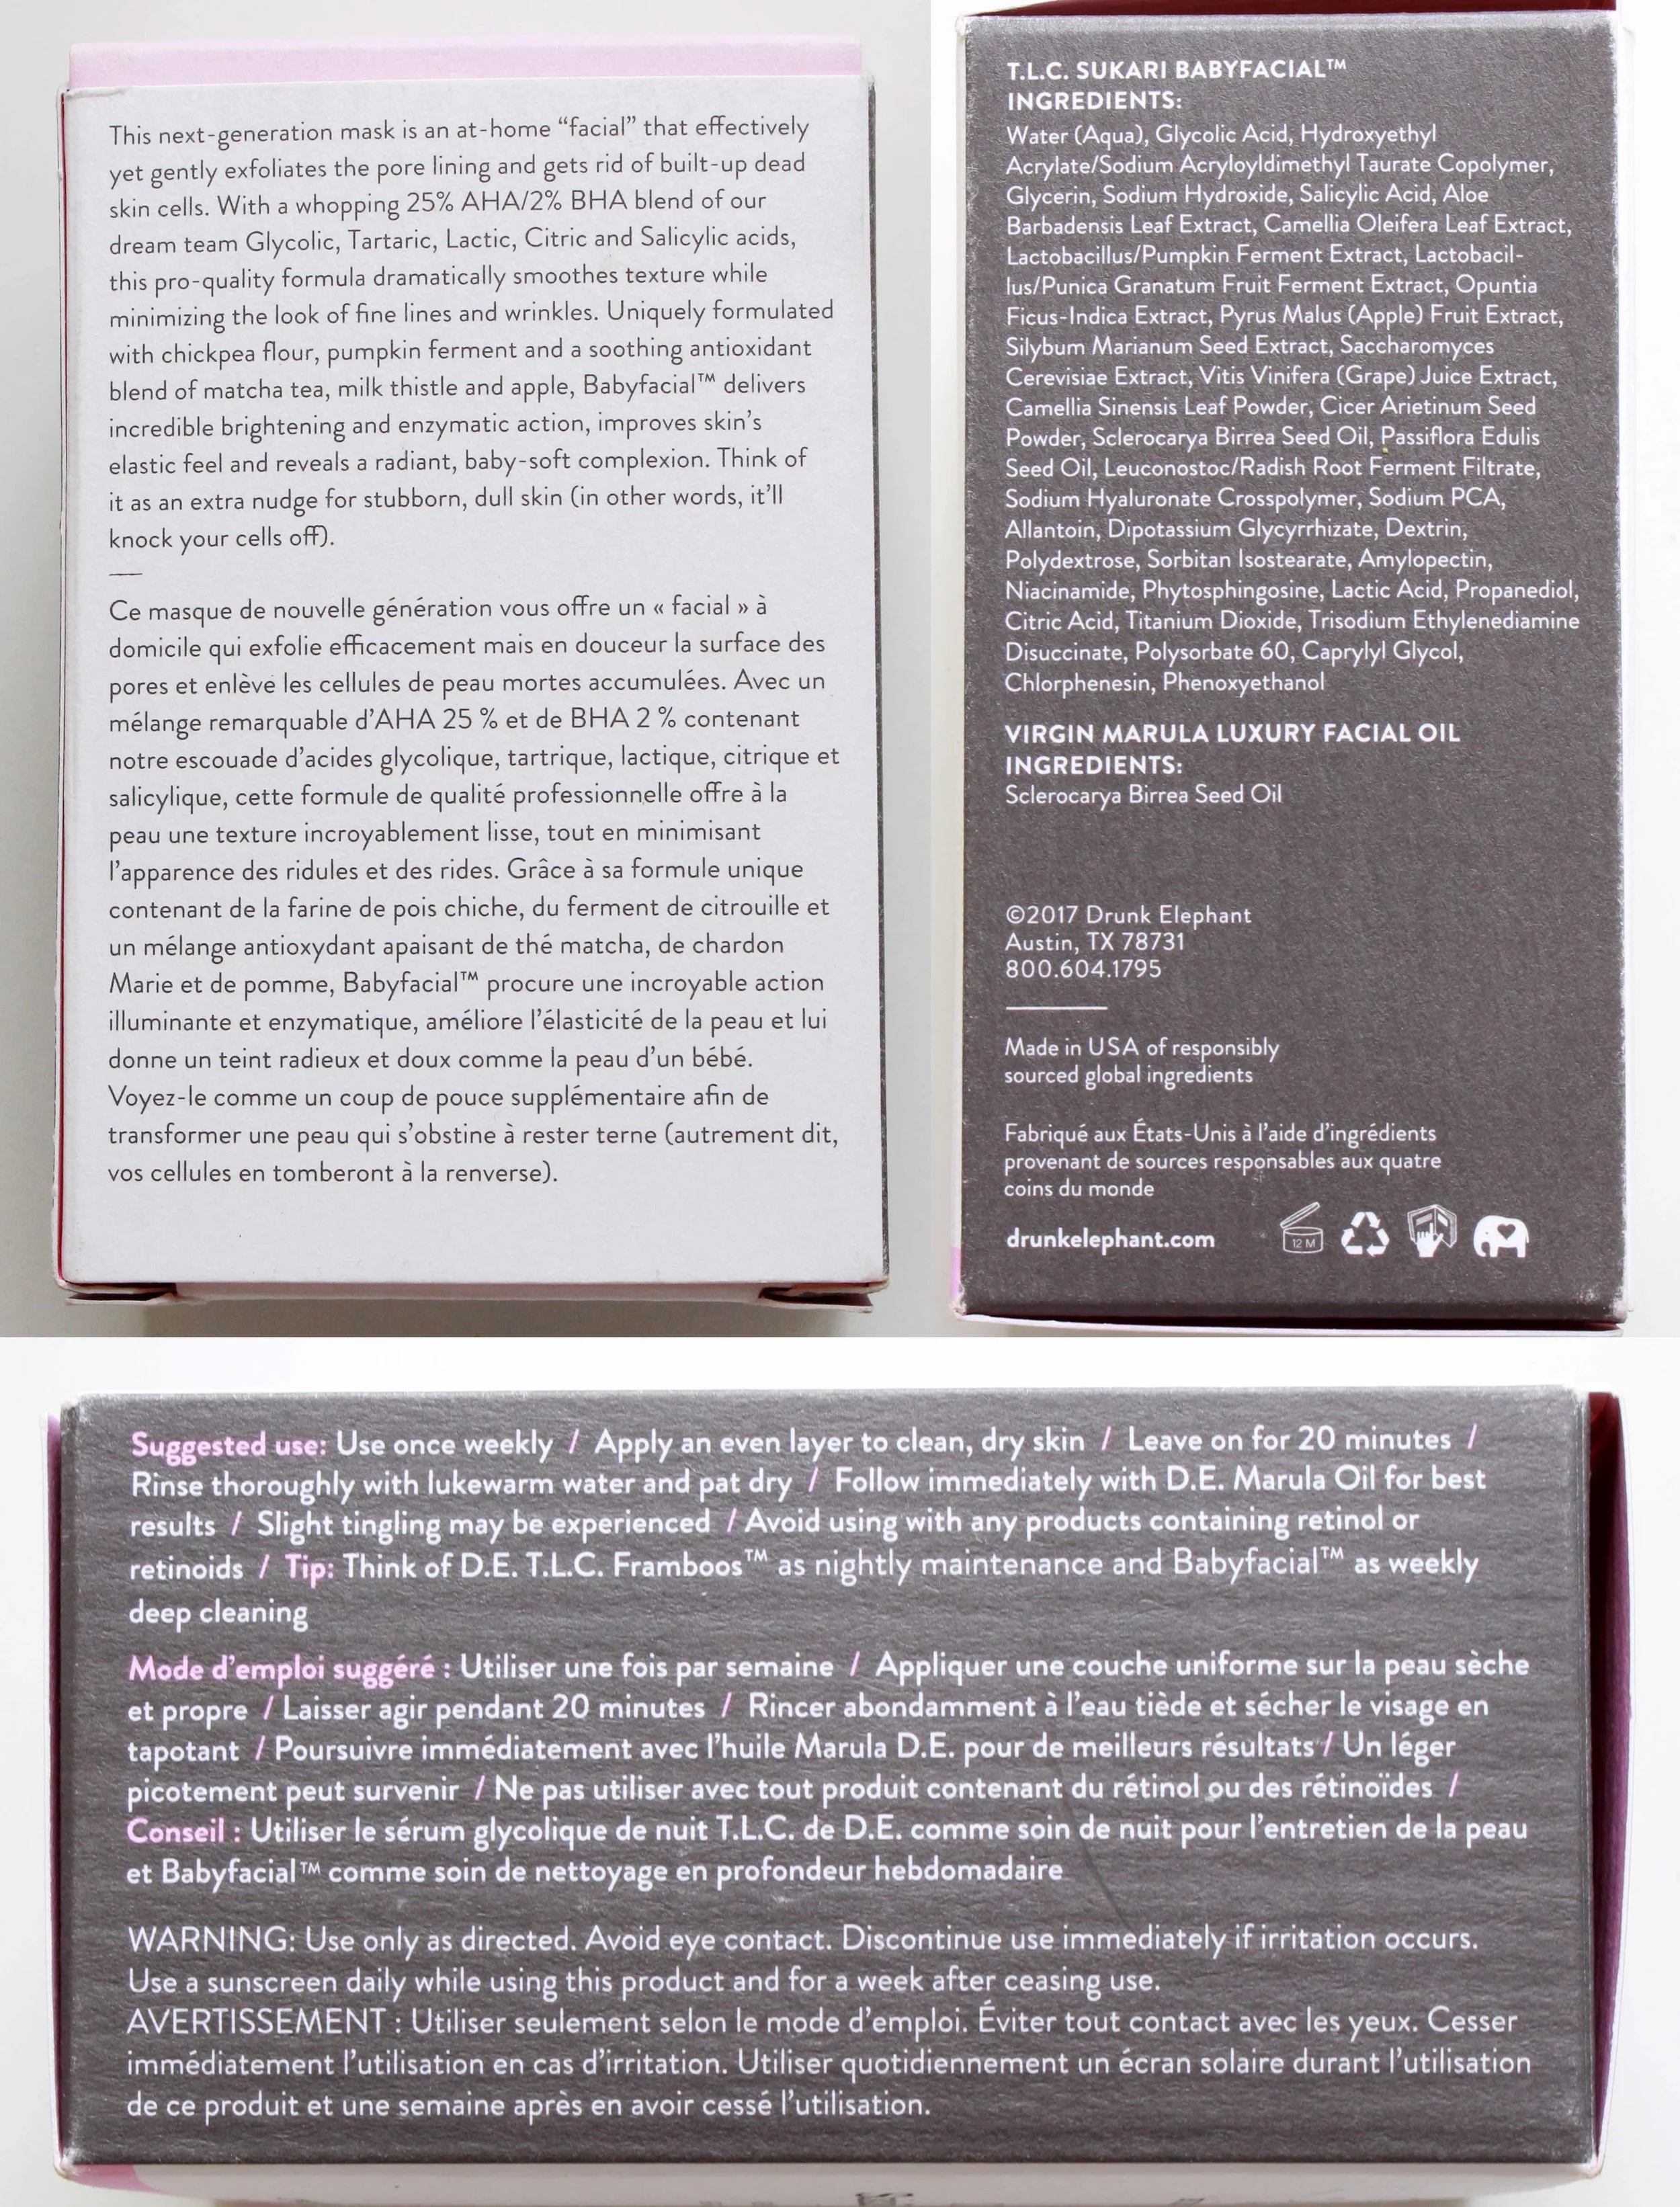 This next-generation mask is an at-home “facial” that effectively
yet gently exfoliates the pore lining and gets rid of built-up dead
skin cells. With a whopping 25% AHA/2% BHA blend of our
dream team Glycolic, Tartaric, Lactic, Citric and Salicylic acids,
this pro-quality formula dramatically smoothes texture while
minimizing the look of fine lines and wrinkles. Uniquely formulated
with chickpea flour, pumpkin ferment and a soothing antioxidant
blend of matcha tea, milk thistle and apple, Babyfacial™ delivers
incredible brightening and enzymatic action, improves skin’s
elastic feel and reveals a radiant, baby-soft complexion. Think of
it as an extra nudge for stubborn, dull skin (in other words, it’ll
knock your cells off).
Ce masque de nouvelle génération vous offre un « facial » à
domicile qui exfolie efficacement mais en douceur la surface des
pores et enlève les cellules de peau mortes accumulées. Avec un
mélange remarquable d’AHA 25 % et de BHA 2 % contenant
notre escouade d’acides glycolique, tartrique, lactique, citrique et
salicylique, cette formule de qualité professionnelle offre à la
peau une texture incroyablement lisse, tout en minimisant
l’apparence des ridules et des rides. Grâce à sa formule unique
contenant de la farine de pois chiche, du ferment de citrouille et
un mélange antioxydant apaisant de thé matcha, de chardon
Marie et de pomme, Babyfacial™ procure une incroyable action
illuminante et enzymatique, améliore l’élasticité de la peau et lui
donne un teint radieux et doux comme la peau d’un bébé.
Voyez-le comme un coup de pouce supplémentaire afin de
transformer une peau qui s’obstine à rester terne (autrement dit,
vos cellules en tomberont à la renverse).
T.L.C. SUKARI BABYFACIAL™
INGREDIENTS:
Water (Aqua), Glycolic Acid, Hydroxyethyl
Acrylate/Sodium Acryloyldimethyl Taurate Copolymer,
Glycerin, Sodium Hydroxide, Salicylic Acid, Aloe
Barbadensis Leaf Extract, Camellia Oleifera Leaf Extract,
Lactobacillus/Pumpkin Ferment Extract, Lactobacil-
lus/Punica Granatum Fruit Ferment Extract, Opuntia
Ficus-Indica Extract, Pyrus Malus (Apple) Fruit Extract,
Silybum Marianum Seed Extract, Saccharomyces
Cerevisiae Extract, Vitis Vinifera (Grape) Juice Extract,
Camellia Sinensis Leaf Powder, Cicer Arietinum Seed
Powder, Sclerocarya Birrea Seed Oil, Passiflora Edulis
Seed Oil, Leuconostoc/Radish Root Ferment Filtrate,
Sodium Hyaluronate Crosspolymer, Sodium PCA,
Allantoin, Dipotassium Glycyrrhizate, Dextrin,
Polydextrose, Sorbitan Isostearate, Amylopectin,
Niacinamide, Phytosphingosine, Lactic Acid, Propanediol,
Citric Acid, Titanium Dioxide, Trisodium Ethylenediamine
Disuccinate, Polysorbate 60, Caprylyl Glycol,
Chlorphenesin, Phenoxyethanol
VIRGIN MARULA LUXURY FACIAL OIL
INGREDIENTS:
Sclerocarya Birrea Seed Oil
©2017 Drunk Elephant
Austin, TX 78731
800.604.1795
Made in USA of responsibly
sourced global ingredients
Fabriqué aux États-Unis à l’aide d’ingrédients
provenant de sources responsables aux quatre
coins du monde
drunkelephant.com 12 M
Suggested use: Use once weekly / Apply an even layer to clean, dry skin / Leave on for 20 minutes /
Rinse thoroughly with lukewarm water and pat dry / Follow immediately with D.E. Marula Oil for best
results / Slight tingling may be experienced / Avoid using with any products containing retinol or
retinoids / Tip: Think of D.E. T.L.C. Framboos™ as nightly maintenance and Babyfacial™ as weekly
deep cleaning
Mode d’emploi suggéré : Utiliser une fois par semaine / Appliquer une couche uniforme sur la peau sèche
et propre / Laisser agir pendant 20 minutes / Rincer abondamment à l’eau tiède et sécher le visage en
tapotant / Poursuivre immédiatement avec l’huile Marula D.E. pour de meilleurs résultats / Un léger
picotement peut survenir / Ne pas utiliser avec tout produit contenant du rétinol ou des rétinoïdes /
Conseil : Utiliser le sérum glycolique de nuit T.L.C. de D.E. comme soin de nuit pour l’entretien de la peau
et Babyfacial™ comme soin de nettoyage en profondeur hebdomadaire
WARNING: Use only as directed. Avoid eye contact. Discontinue use immediately if irritation occurs.
Use a sunscreen daily while using this product and for a week after ceasing use.
AVERTISSEMENT : Utiliser seulement selon le mode d’emploi. Éviter tout contact avec les yeux. Cesser
immédiatement l’utilisation en cas d’irritation. Utiliser quotidiennement un écran solaire durant l’utilisation
de ce produit et une semaine après en avoir cessé l’utilisation.